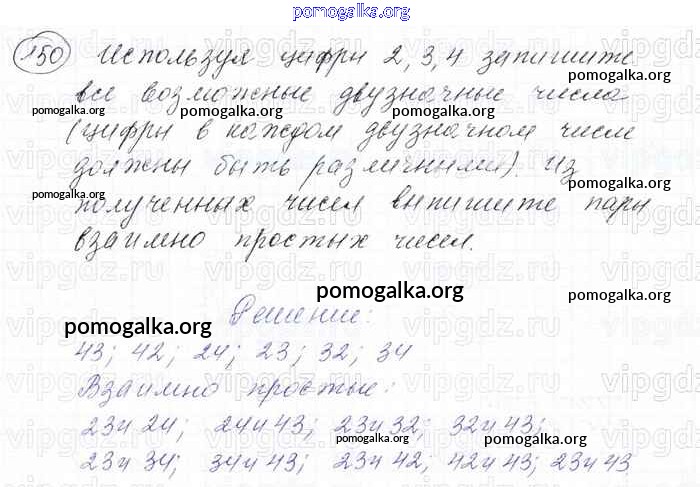 pomogalka.org
150 Используя цифры 2, 3, 4 запишите
pomogalka.org
все возможные двузначные числа
pomogalka.org
(цифры в каждом двузначном числе
должны быть различными). Из
pomogalka.org pomogalka.org
полученных чисел выпишите пары
взаимно простых чисел.
pomogalka.org pomogalka.org
Решение:
pomogalka.org
43; 42; 24; 23; 32; 34
Взаимно простые:
23 и 24; 24 и 43; 23 и 32; 32 и 43;
pomogalka.org pomogalka.org
23 и 34; 34 и 43; 23 и 42; 42 и 43; 23 и 43
pomogalka.org